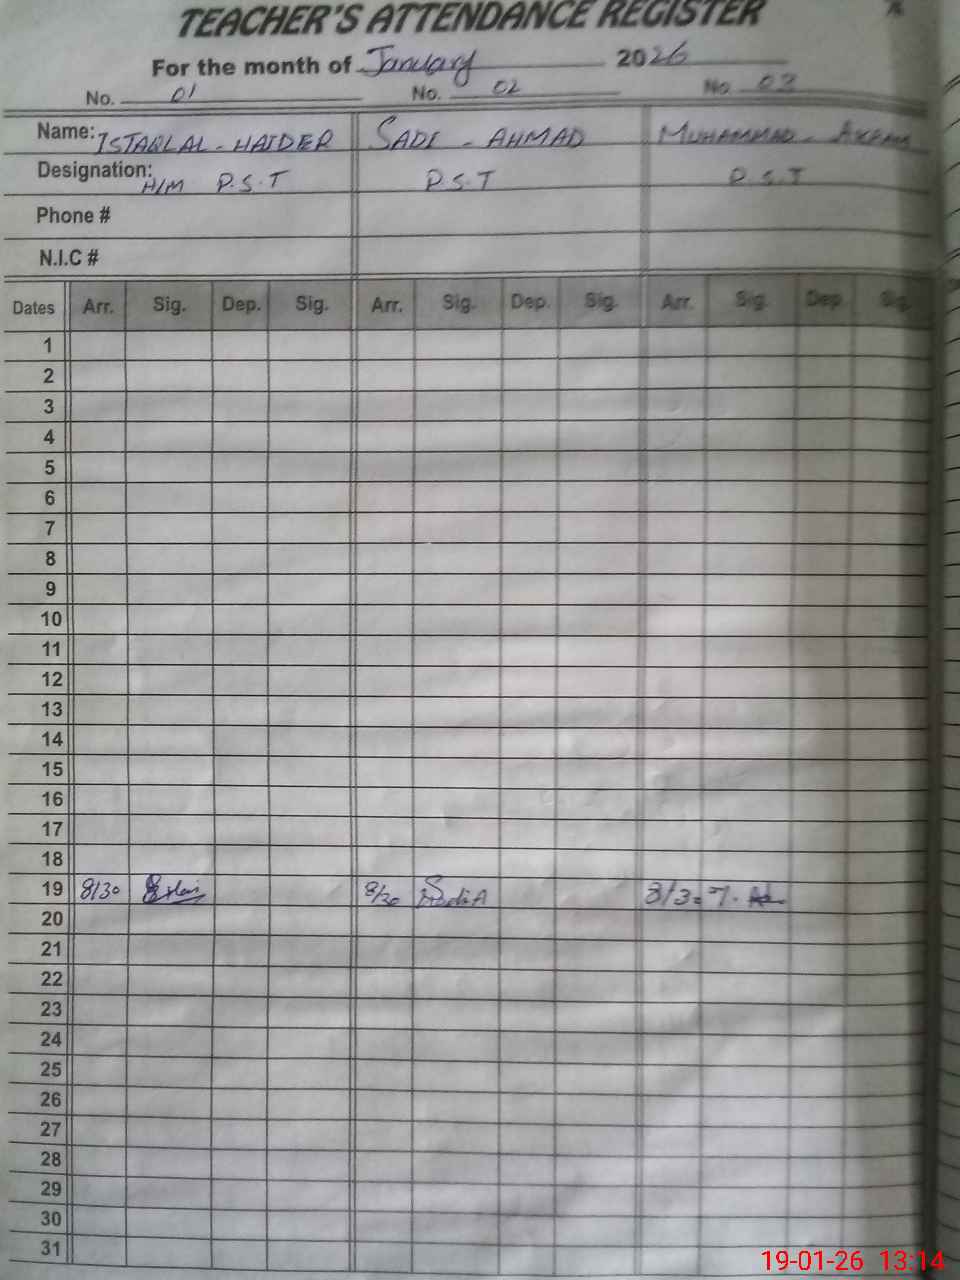 TEACHER'S ATTENDANCE REGISTER
For the month of January 2026
No. 01 No. 02 No. 03
Name: ISTAQLAL - HAIDER SADI - AHMAD MUHAMMAD - AKRAM
Designation: H/M P.S.T P.S.T P.S.T
Phone #
N.I.C #
Dates Arr. Sig. Dep. Sig. Arr. Sig. Dep. Sig. Arr. Sig. Dep. Sig.
1
2
3
4
5
6
7
8
9
10
11
12
13
14
15
16
17
18
19 8/30 8/30 8/30
20
21
22
23
24
25
26
27
28
29
30
31
19-01-26 13:14